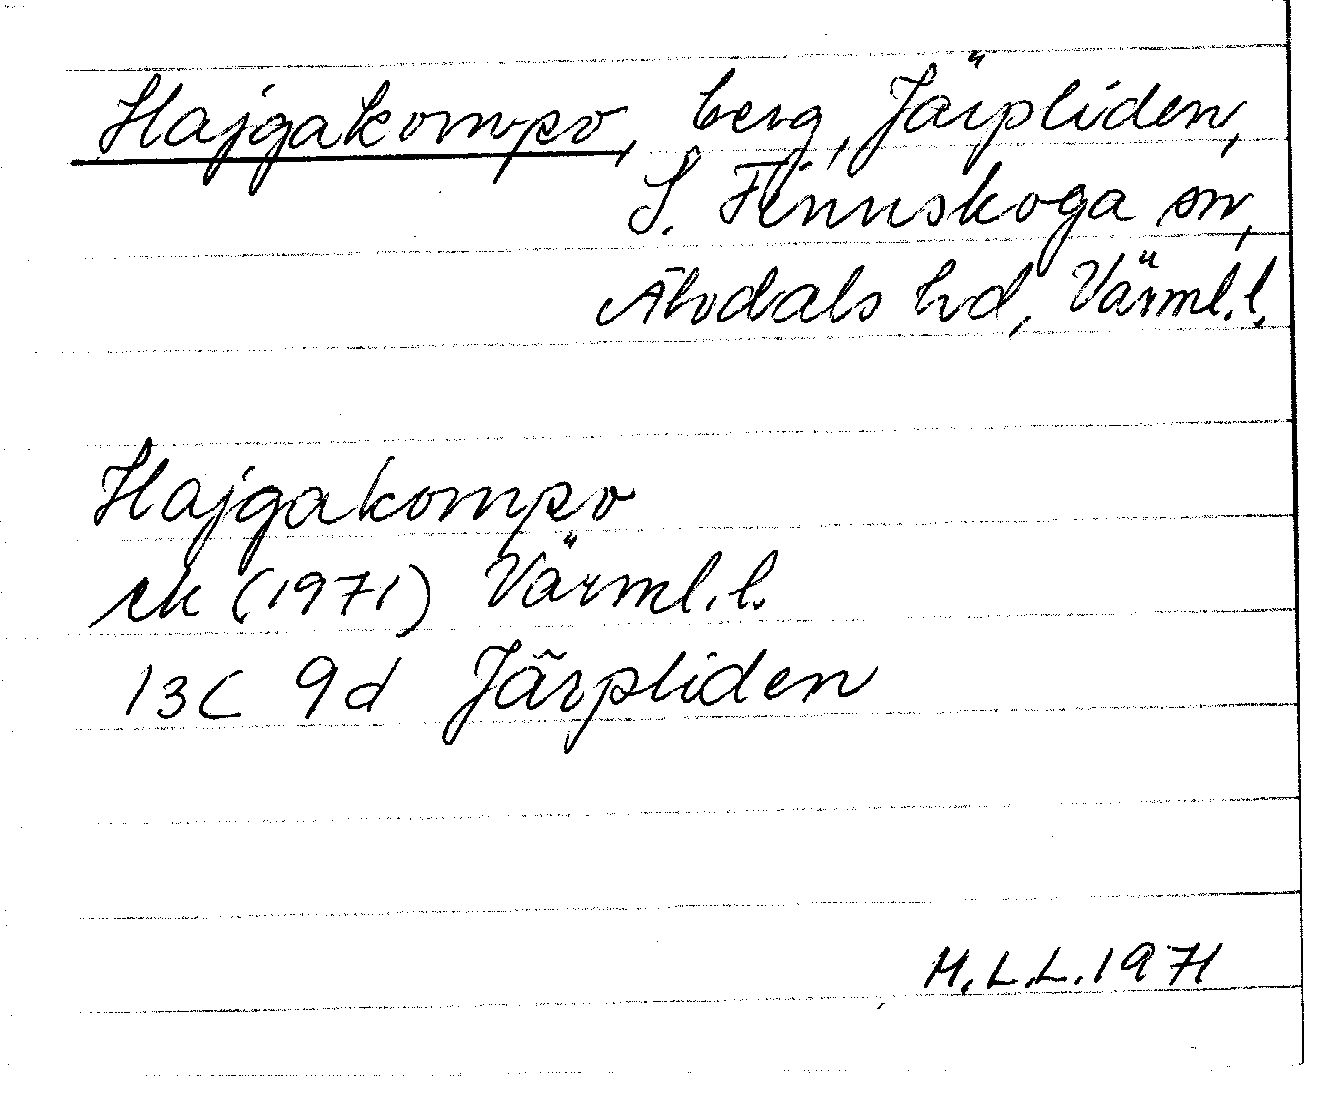 Hajgakompo, berg, Järpliden,
S. Finnskoga sn,
Älvdals hd, Värml.l.
Hajgakompo
ek (1971) Värml.l.
13C 9d Järpliden
H.L.L. 1971